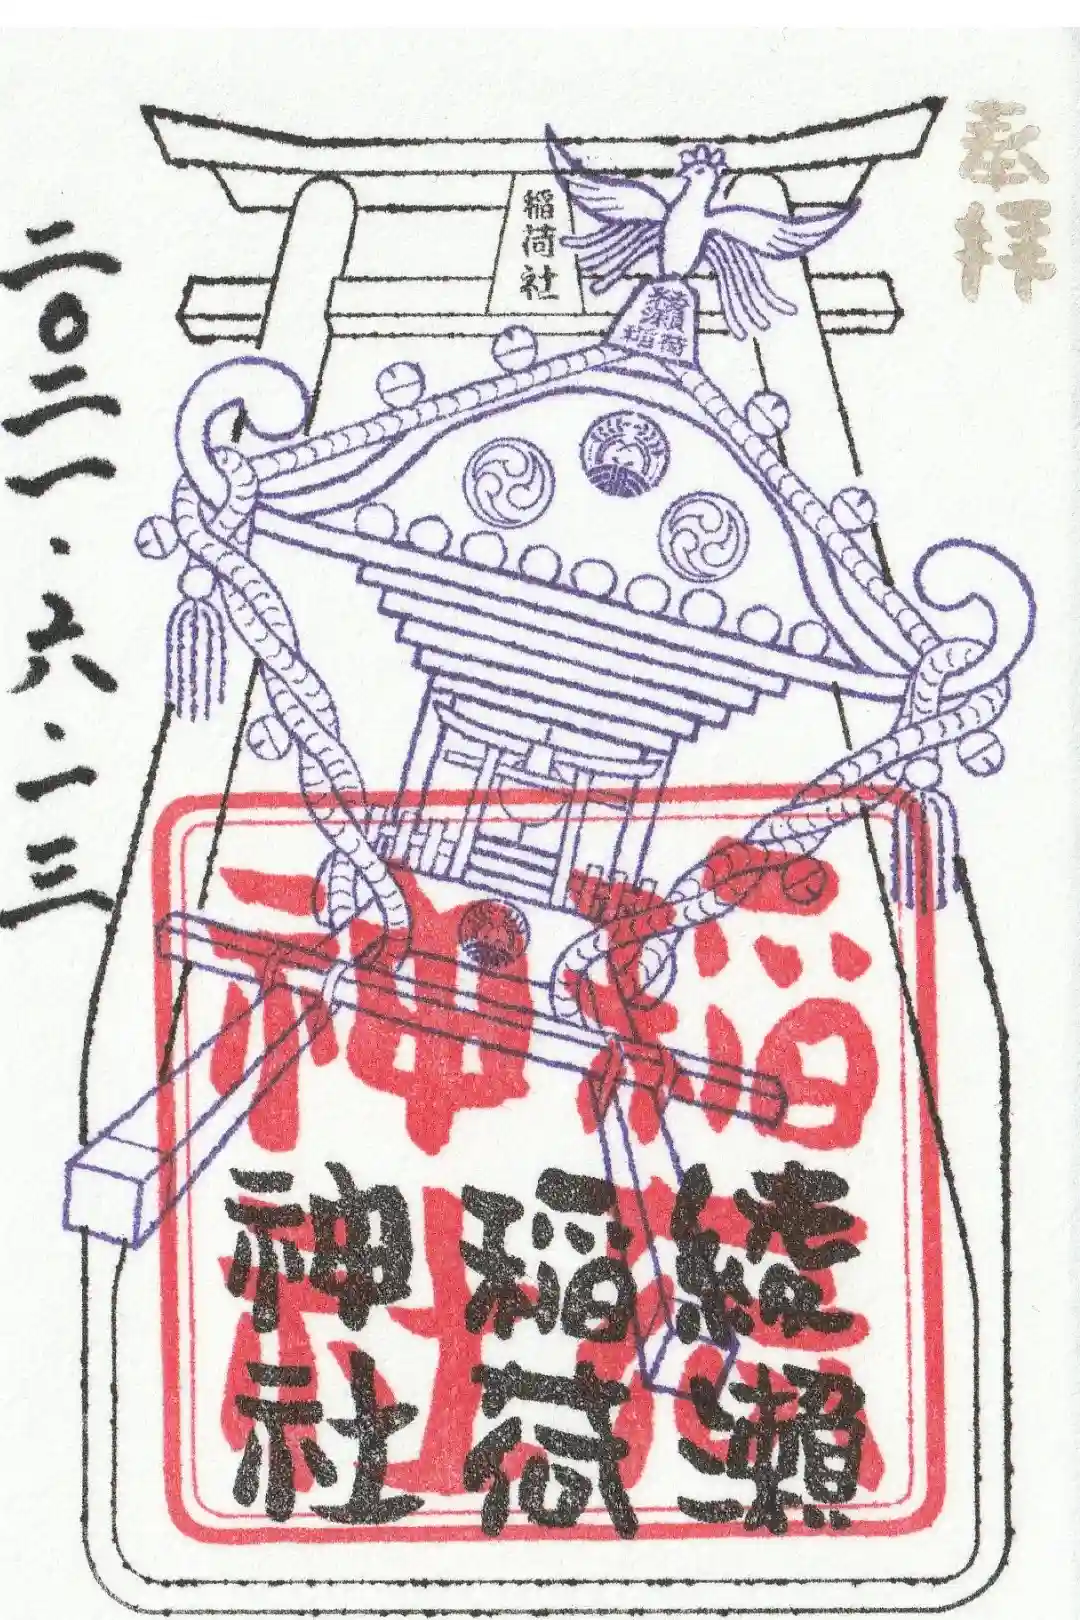 奉拝
稲荷社
綾瀬
稲荷
稲荷
神社
綾瀬
稲荷
神社
二〇二一・六・一三